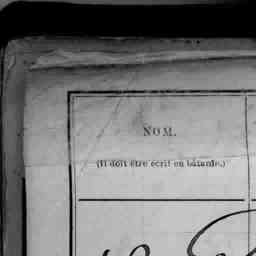 NOM.
(Il doit être écrit en bâtarde.)